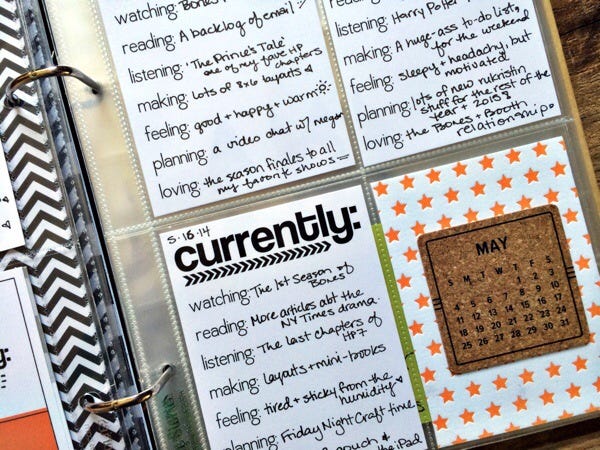 watching: Bones
reading: A backlog of email
listening: 'The Prince's Tale'
one of my fave HP
chapters
making: Lots of 8x6 layouts
feeling: good + happy + warm
planning: a video chat w/ megan
loving: the season finales to all
my favorite shows
listening: Harry Potter
making: A huge-ass to-do list
for the weekend
feeling: sleepy + headachy, but
motivated
planning: lots of new rukristin
stuff for the rest of the
year + 2015!
loving: the Bones + Booth
relationship
5.16.14
currently:
watching: The 1st Season of
Bones
reading: More articles abt the
NY Times drama.
listening: The last chapters of
HP7
making: layouts + mini-books
feeling: tired + sticky from the
humidity
planning: Friday Night Craft time
couch &
the iPad
MAY
S M T W T F S
1 2 3
4 5 6 7 8 9 10
11 12 13 14 15 16 17
18 19 20 21 22 23 24
25 26 27 28 29 30 31